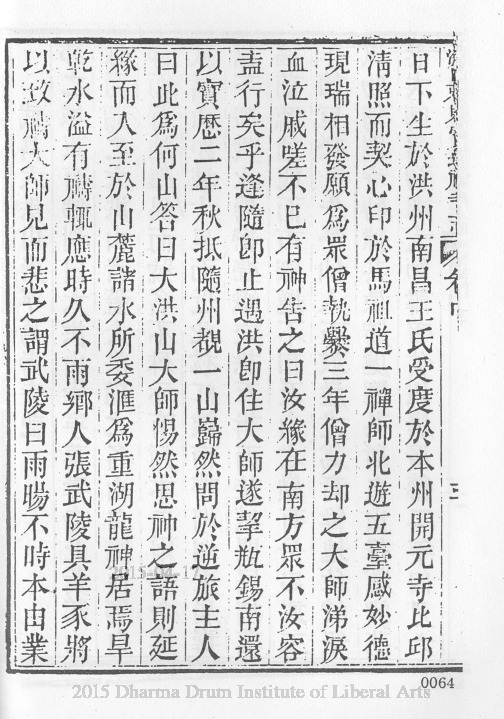 日下生於洪州南昌王氏受度於本州開元寺比邱
清照而契心印於馬祖道一禪師北遊五臺感妙德
現瑞相發願爲眾僧執爨三年僧力却之大師涕淚
血泣慼嗟不已有神告之曰汝緣在南方眾不汝容
盍行矣乎逢隨卽止遇洪卽住大師遂挈瓶錫南還
以寶歷二年秋抵隨州覩一山巋然問於逆旅主人
曰此爲何山答曰大洪山大師惕然思神之語則延
緣而入至於山麓諸水所委滙爲重湖龍神居焉旱
乾水溢有禱輒應時久不雨鄉人張武陵具羊豕將
以致禱大師見而悲之謂武陵曰雨暘不時本由業
三
0064
2015 Dharma Drum Institute of Liberal Arts